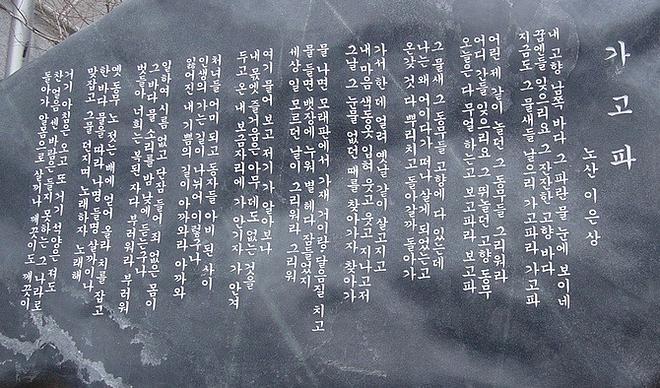 가고파
노산 이은상
내 고향 남쪽 바다 그 파란 물 눈에 보이네
꿈엔들 잊으리요 그 잔잔한 고향 바다
지금도 그 물새들 날으리 가고파라 가고파
어린 제 같이 놀던 그 동무들 그리워라
어디 간들 잊으리요 그 뛰놀던 고향 동무
오늘은 다 무얼 하는고 보고파라 보고파
그 물새 그 동무들 고향에 다 있는데
나는 왜 어이다가 떠나 살게 되었는고
온갖 것 다 뿌리치고 돌아갈까 돌아가
가서 한데 얼려 옛날 같이 살고지고
내 마음 색동옷 입혀 웃고 웃고 지나고저
그 날 그 눈물 없던 때를 찾아가자 찾아가
물 나면 모래판에서 가재 거이랑 달음질 치고
물 들면 뱃장에 누워 별 헤다 잠들었지
세상 일 모르던 날이 그리워라 그리워
여기 물어 보고 저기가 알아보나
내 몫엣 즐거움은 아무데도 없는 것을
두고 온 내 보금자리에 가 안기자 가 안겨
처녀들 어미 되고 동자들 아비 된 사이
인생의 가는 길이 나뉘어 이렇구나
잃어진 내 기쁨의 길이 아까와라 아까와
일하여 시름 없고 단잠 들어 죄 없은 몸이
그 바다 물소리를 밤 낮에 듣는구나
벗들아 너희는 복된 자다 부러워라 부러워
옛 동무 노 젓는 배에 얻어 올라 치를 잡고
한 바다 물을 따라 나명 들명 살까이나
맞잡고 그물 던지며 노래하자 노래해
거기 아침은 오고 또 거기 석양은 져도
찬 얼음 센 바람은 들지 못하는 그 나라로
돌아가 알몸으로 살꺼나 깨끗이도 깨끗이